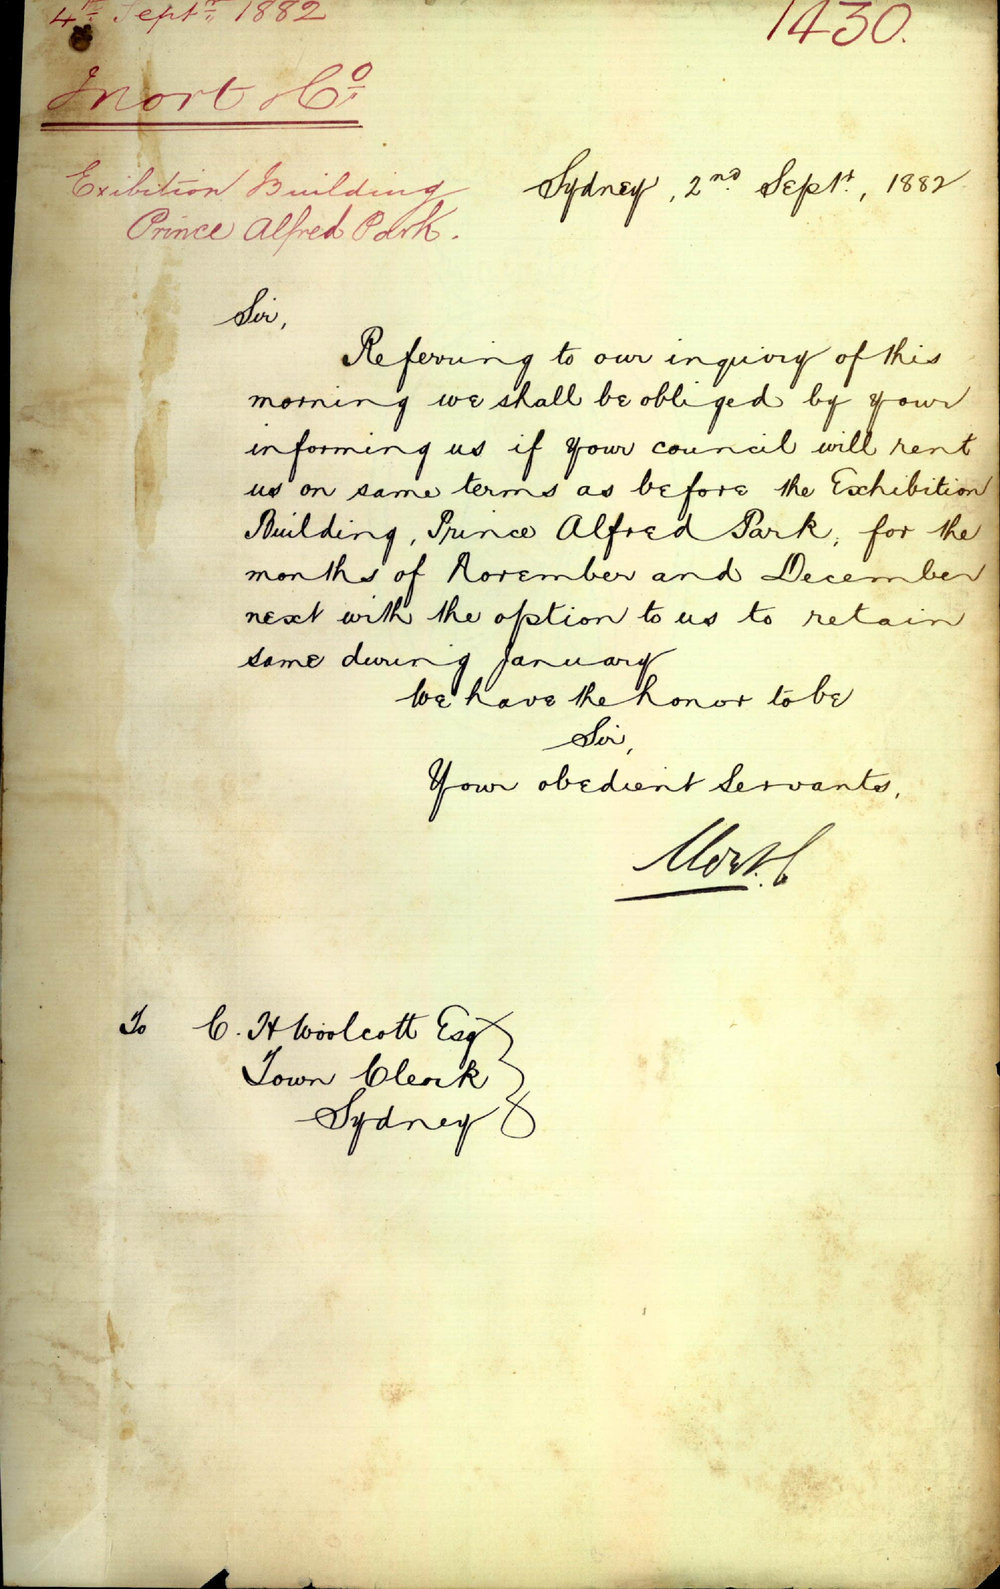 4th Septr 1882
1430.
Mort & Co
Exibition Building
Prince Alfred Park.
Sydney, 2nd Sept., 1882
Sir,
Referring to our inquiry of this
morning we shall be obliged by your
informing us if your council will rent
us on same terms as before the Exhibition
Building, Prince Alfred Park, for the
months of November and December
next with the option to us to retain
same during January
We have the honor to be
Sir,
Your obedient Servants,
Mort. C
To C. H Woolcott Esq
Town Clerk
Sydney